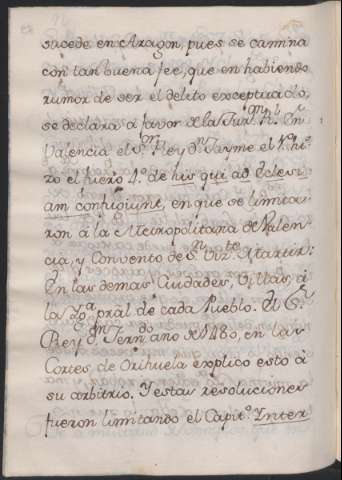 sucede en Aragon, pues se camina
con tan buena fee, que en habiendo
rumor de ser el delito exceptuado,
se declara à favor de la Jur.on Rl. En
Valencia el S.or Rey Dn. Jayme el 1.º hi-
zo el fuero 4.º de his qui ad Eclesi
am confugiunt, en que se limita-
ron à la Metropolitana de Valen
cia, y Convento de S.n Viz.te Martir:
En las demas Ciudades, Villas, à
la Yg.a pral de cada Pueblo. El S.r
Rey Dn. Fern.do año de 1480, en las
Cortes de Orihuela explicó esto à
su arbitrio. Y estas resoluciones
fueron limitando el Capit.º Inter